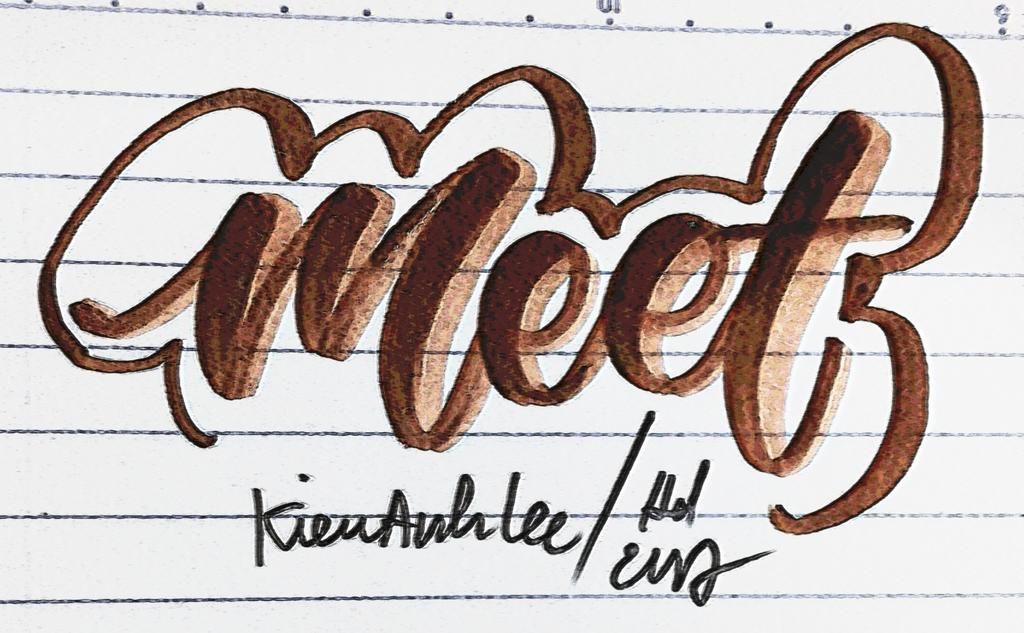 meet
KienAnhLee/